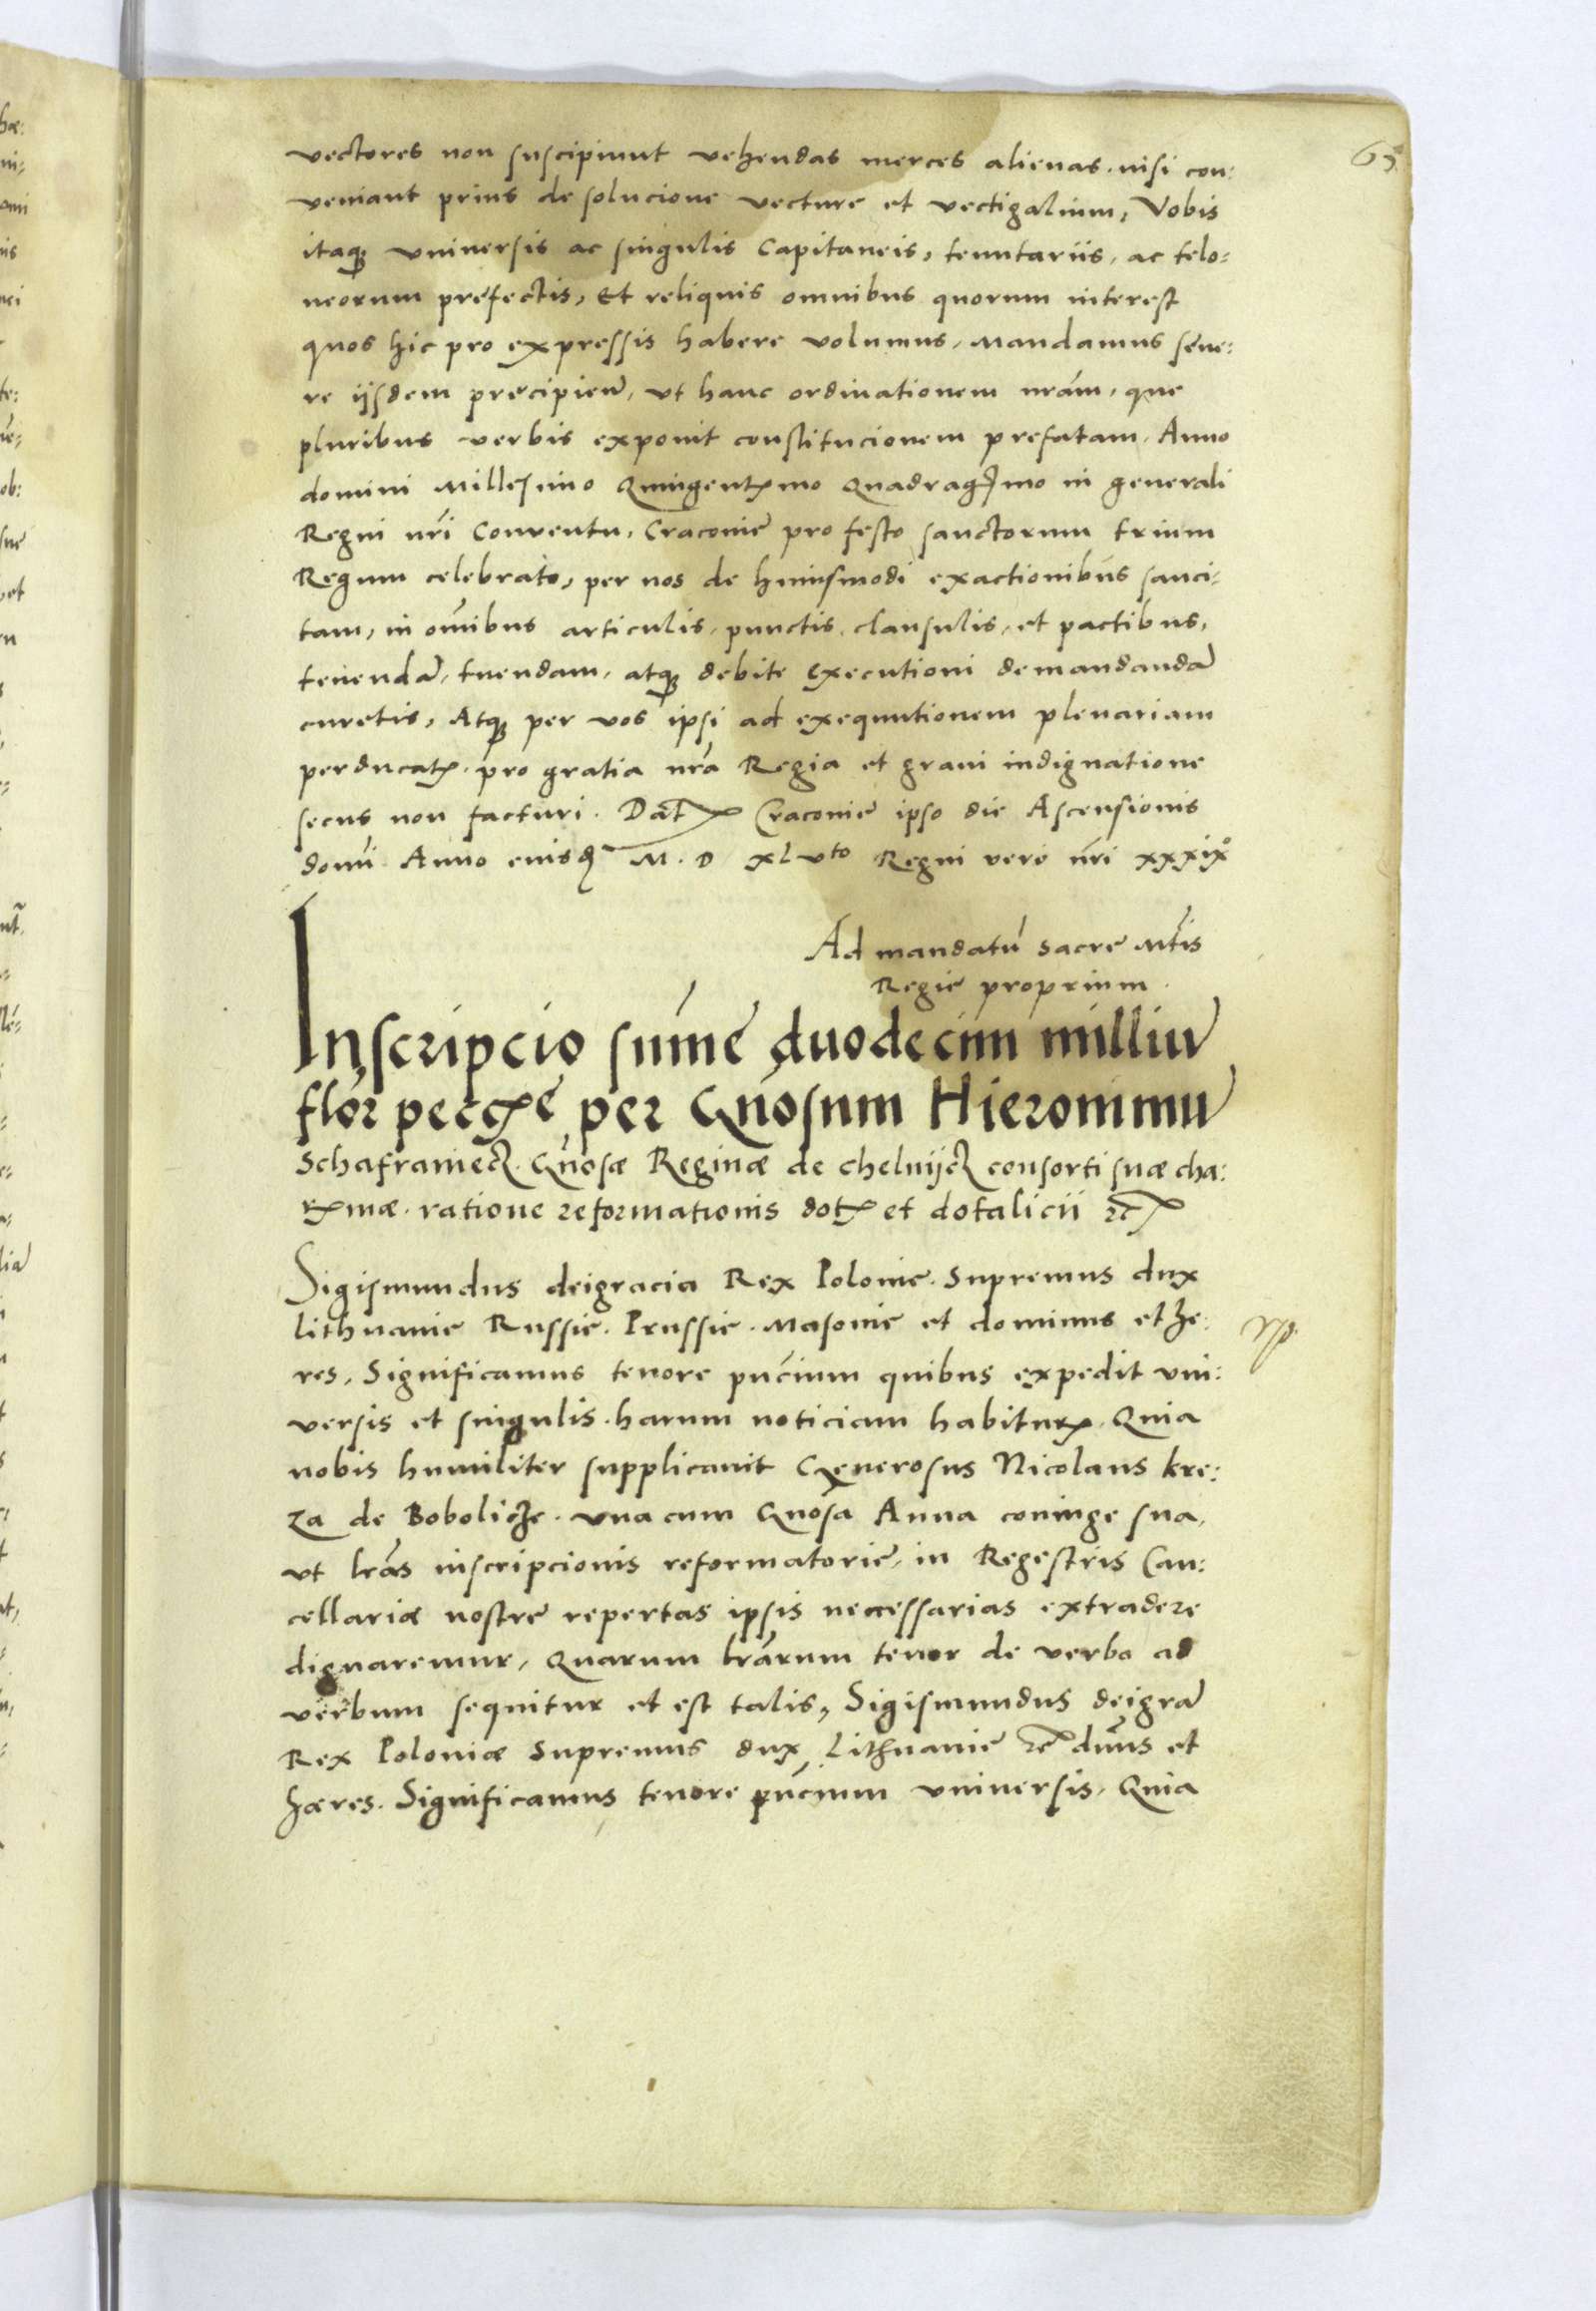 65
vectores non suscipiunt vehendas merces alienas. nisi con:
veniant prius de solucione vecture et vectigalium, Vobis
itaqꝫ universis ac singulis Capitaneis, tenutariis, ac telo:
neorum prefectis, Et reliquis omnibus quorum interest
quos hic pro expressis habere volumus, mandamus seve:
re iisdem precipien̄, ut hanc ordinationem nr̄am, que
pluribus verbis exponit constitucionem prefatam. Anno
domini Millesimo Quingentꝭmo Quadragꝭmo in generali
Regni nr̄i Conventu, Cracovie pro festo sanctorum trium
Regum celebrato, per nos de huiusmodi exactionibus sanci:
tam, in om̄ibus articulis, punctis, clausulis, et partibus,
tenendā, tuendam, atqꝫ debite executioni demandandā
curetis, Atqꝫ per vos ipsi ad exequutionem plenariam
perducatꝭ. pro gratia nr̄a Regia et gravi indignatione
secus non facturi. Dat̄ꝭ Cracovie ipso die Ascensionis
domī Anno eiusdꝫ M. D XLvto Regni vero nr̄i xxxixº
Ad mandatū sacre Mt̄is
Regie proprium.
Inscripcio sum̄e duodecim milliū
flor̄ pecꝭe per Gn̄osum Hieronimū
Schafraniecꝫ. Gn̄osæ Reginæ de Chelmijcꝫ consorti suæ cha:
rꝭmæ. ratione reformationis dotꝭ et dotalicii ꝛcꝭ
Sigismundus deigracia Rex Polonie. Supremus dux
Lithuanie Russie. Prussie. Masovie et dominus et he:
res, Significamus tenore pn̄cium quibus expedit uni:
versis et singulis. harum noticiam habiturꝭ. Quia
nobis humiliter supplicavit Generosus Nicolaus kre:
za de Bobolicze. una cum Gn̄osa Anna coniuge sua,
ut lr̄as inscripcionis reformatorie, in Regestris Can:
cellariæ nostre repertas ipsis neccessarias extradere
dignaremur, Quarum lr̄arum tenor de verbo ad
verbum sequitur et est talis, Sigismundus deigrā
Rex Poloniæ Supremus dux Lithuanie ꝛc̄ dn̄us et
hæres. Significamus tenore pn̄cium universis, Quia